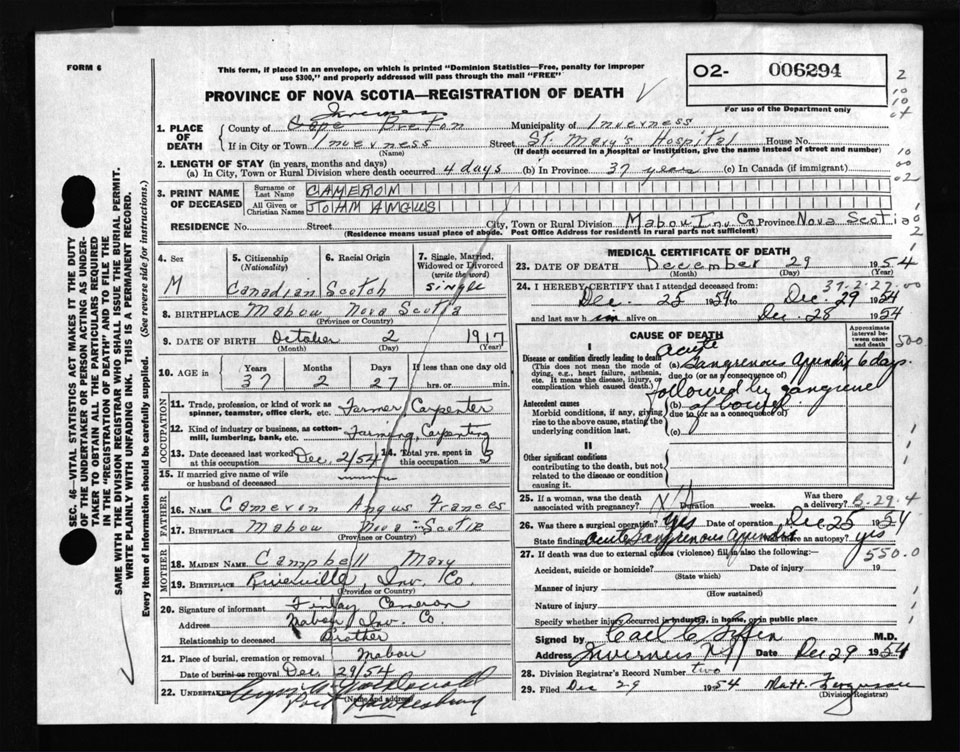 FORM 6
This form, if placed in an envelope, on which is printed "Dominion Statistics—Free, penalty for improper
use $300," and properly addressed will pass through the mail "FREE"
PROVINCE OF NOVA SCOTIA—REGISTRATION OF DEATH
O2- 006294
For use of the Department only
1. PLACE OF DEATH
County of Cape Breton Inverness Municipality of Inverness
If in City or Town Inverness Street St. Mary's Hospital House No.
(Name) (If death occurred in a hospital or institution, give the name instead of street and number)
2. LENGTH OF STAY (in years, months and days)
(a) In City, Town or Rural Division where death occurred 4 days (b) In Province 37 years (c) In Canada (if immigrant)
3. PRINT NAME OF DECEASED
Surname or Last Name CAMERON
All Given or Christian Names JOHN ANGUS
RESIDENCE No. Street City, Town or Rural Division Mabou Inv. Co Province Nova Scotia
(Residence means usual place of abode. Post Office Address for residents in rural parts not sufficient)
4. Sex M
5. Citizenship (Nationality) Canadian
6. Racial Origin Scotch
7. Single, Married, Widowed or Divorced (write the word) Single
8. BIRTHPLACE Mabou Nova Scotia
(Province or Country)
9. DATE OF BIRTH October 2 1917
(Month) (Day) (Year)
10. AGE in Years 37 Months 2 Days 27 If less than one day old hrs. or min.
OCCUPATION
11. Trade, profession, or kind of work as spinner, teamster, office clerk, etc. Farmer, Carpenter
12. Kind of industry or business, as cotton-mill, lumbering, bank, etc. Farming, Carpentry
13. Date deceased last worked at this occupation Dec. 2/54 14. Total yrs. spent in this occupation 3
15. If married give name of wife or husband of deceased
FATHER
16. NAME Cameron Angus Frances
17. BIRTHPLACE Mabou Nova Scotia
(Province or Country)
MOTHER
18. MAIDEN NAME Campbell Mary
19. BIRTHPLACE Riverville, Inv. Co.
(Province or Country)
20. Signature of informant Finlay Cameron
Address Mabou, Inv. Co.
Relationship to deceased Brother
21. Place of burial, cremation or removal Mabou
Date of burial or removal Dec. 29/54
22. UNDERTAKER
Port Hawkesbury
(Name and address)
MEDICAL CERTIFICATE OF DEATH
23. DATE OF DEATH December 29 1954
(Month) (Day) (Year)
24. I HEREBY CERTIFY that I attended deceased from: 37-2-27.00
Dec. 25 1954 to Dec. 29 1954
and last saw him alive on Dec. 28 1954
CAUSE OF DEATH
Approximate interval between onset and death
I
Disease or condition directly leading to death
(This does not mean the mode of dying, e.g., heart failure, asthenia, etc. It means the disease, injury, or complication which caused death.)
(a) Acute Gangrenous Appendix 6 days
due to (or as a consequence of)
Antecedent causes
Morbid conditions, if any, giving rise to the above cause, stating the underlying condition last.
(b) followed by gangrene of bowel
due to (or as a consequence of)
(c)
II
Other significant conditions
contributing to the death, but not related to the disease or condition causing it.
25. If a woman, was the death associated with pregnancy? N/A Duration Was there a delivery?
26. Was there a surgical operation? Yes Date of operation Dec 25 1954
State findings acute Gangrenous Appendix Was there an autopsy? yes
27. If death was due to external causes (violence) fill in also the following: 550.0
Accident, suicide or homicide? Date of injury 19
(State which)
Manner of injury
(How sustained)
Nature of injury
Specify whether injury occurred in industry, in home, or in public place
Signed by M.D.
Address Inverness NS Date Dec 29 1954
28. Division Registrar's Record Number two
29. Filed Dec 29 1954 Matt. Ferguson
(Division Registrar)
SEC. 46—VITAL STATISTICS ACT MAKES IT THE DUTY
OF THE UNDERTAKER OR PERSON ACTING AS UNDER-
TAKER TO OBTAIN ALL THE PARTICULARS REQUIRED
IN THE "REGISTRATION OF DEATH" AND TO FILE THE
SAME WITH THE DIVISION REGISTRAR WHO SHALL ISSUE THE BURIAL PERMIT.
WRITE PLAINLY WITH UNFADING INK. THIS IS A PERMANENT RECORD.
Every item of information should be carefully supplied. (See reverse side for instructions.)